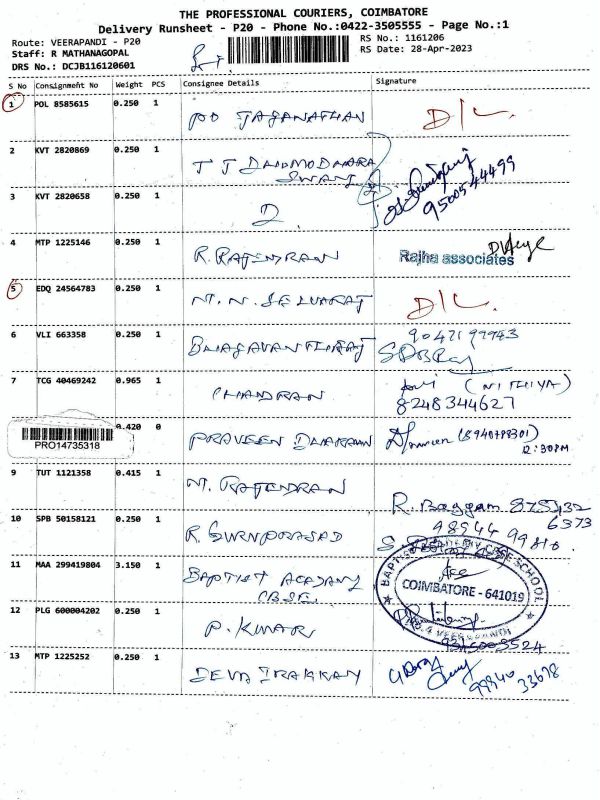 THE PROFESSIONAL COURIERS, COIMBATORE
Delivery Runsheet - P20 - Phone No.:0422-3505555 - Page No.:1
Route: VEERAPANDI - P20
RS No.: 1161206
Staff: R MATHANAGOPAL
RS Date: 28-Apr-2023
DRS No.: DCJB116120601
S No Consignment No Weight PCS Consignee Details Signature
1 POL 8585615 0.250 1 JAGANATHAN D/L.
2 KVT 2820869 0.250 1 T J DHAMODHARA SWAMY
9500544499
3 KVT 2820658 0.250 1
4 MTP 1225146 0.250 1 R. RAJENDRAN Rajha associates
5 EDQ 24564783 0.250 1 M. N. SELVARAJ D/L
6 VLI 663358 0.250 1 BHAGAVANTHRAJ
7 TCG 40469242 0.965 1 CHANDRAN (NITHIYA)
8248344627
0.420 0 PRAVEEN DHARAUN
12:30PM
PRO14735318
9 TUT 1121358 0.415 1 M. RAJENDRAN R. Baggam
10 SPB 50158121 0.250 1 R. GURUPRASAD
11 MAA 299419804 3.150 1 BAPTIST ACADAMY
CBSE.
COIMBATORE - 641019
12 PLG 600004202 0.250 1 P. KUMAR
13 MTP 1225252 0.250 1 DEVA IRAKKAM
99940 33678